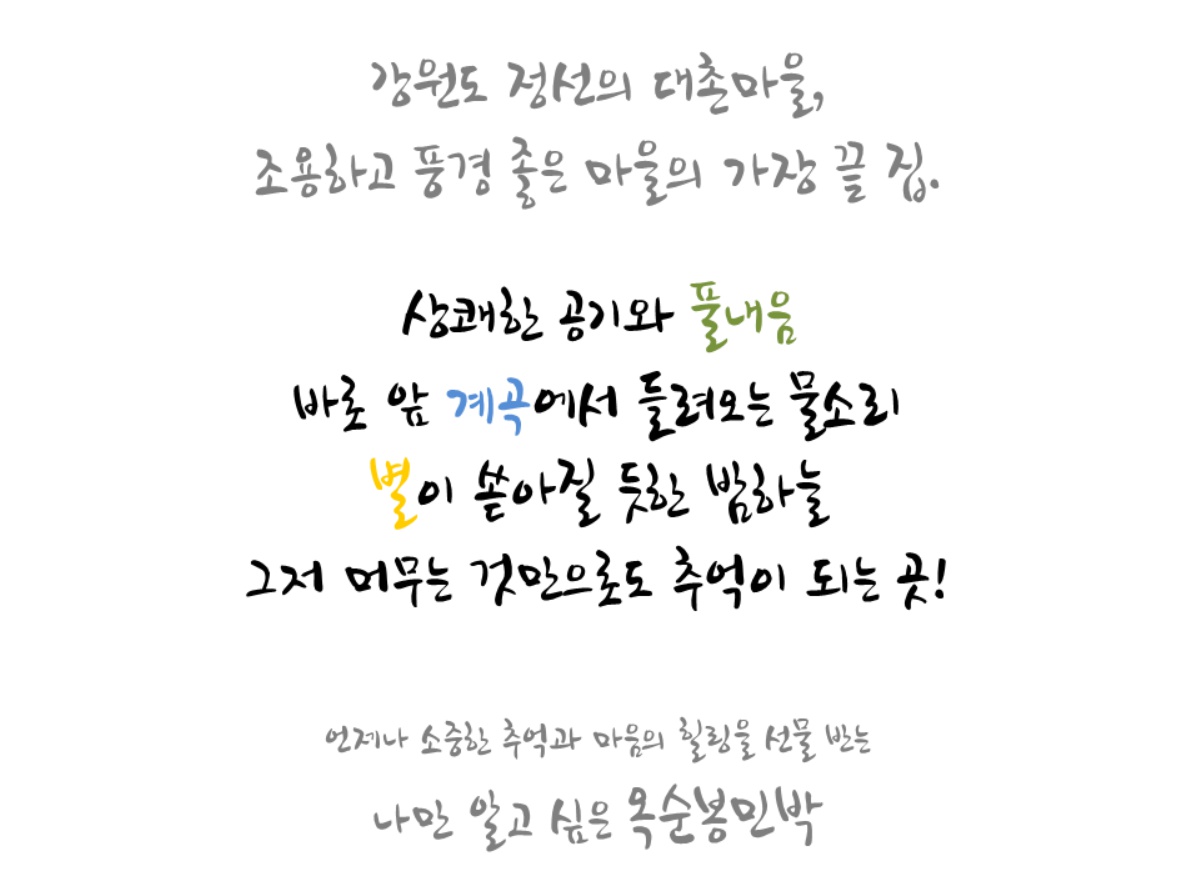 강원도 정선의 대촌마을,
조용하고 풍경 좋은 마을의 가장 끝 집.
상쾌한 공기와 풀내음
바로 앞 계곡에서 들려오는 물소리
별이 쏟아질 듯한 밤하늘
그저 머무는 것만으로도 추억이 되는 곳!
언제나 소중한 추억과 마음의 힐링을 선물 받는
나만 알고 싶은 옥순봉민박